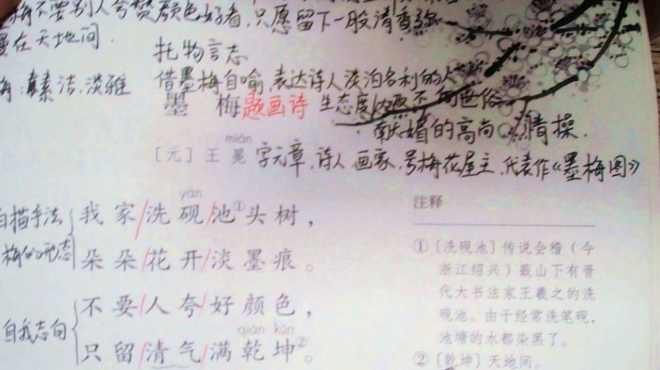 梅不要别人夸赞颜色好看,只愿留下一股清香弥
漫在天地间.
托物言志
梅:素洁、淡雅
借墨梅自喻,表达诗人淡泊名利的人
墨 梅 题画诗 生态度以及不向世俗
献媚的高尚情操.
mián
[元]王 冕 字元章,诗人、画家,号梅花屋主,代表作《墨梅图》
yàn
白描手法 我家/洗砚/池①头树,
梅的形态 朵朵/花开/淡墨痕。
不要/人夸/好颜色,
自我志向
qián kūn
只留/清气/满乾坤②。
注释
①〔洗砚池〕传说会稽(今
浙江绍兴)蕺山下有晋
代大书法家王羲之的洗
砚池。由于经常洗笔砚,
池塘的水都染黑了。
②〔乾坤〕天地间。